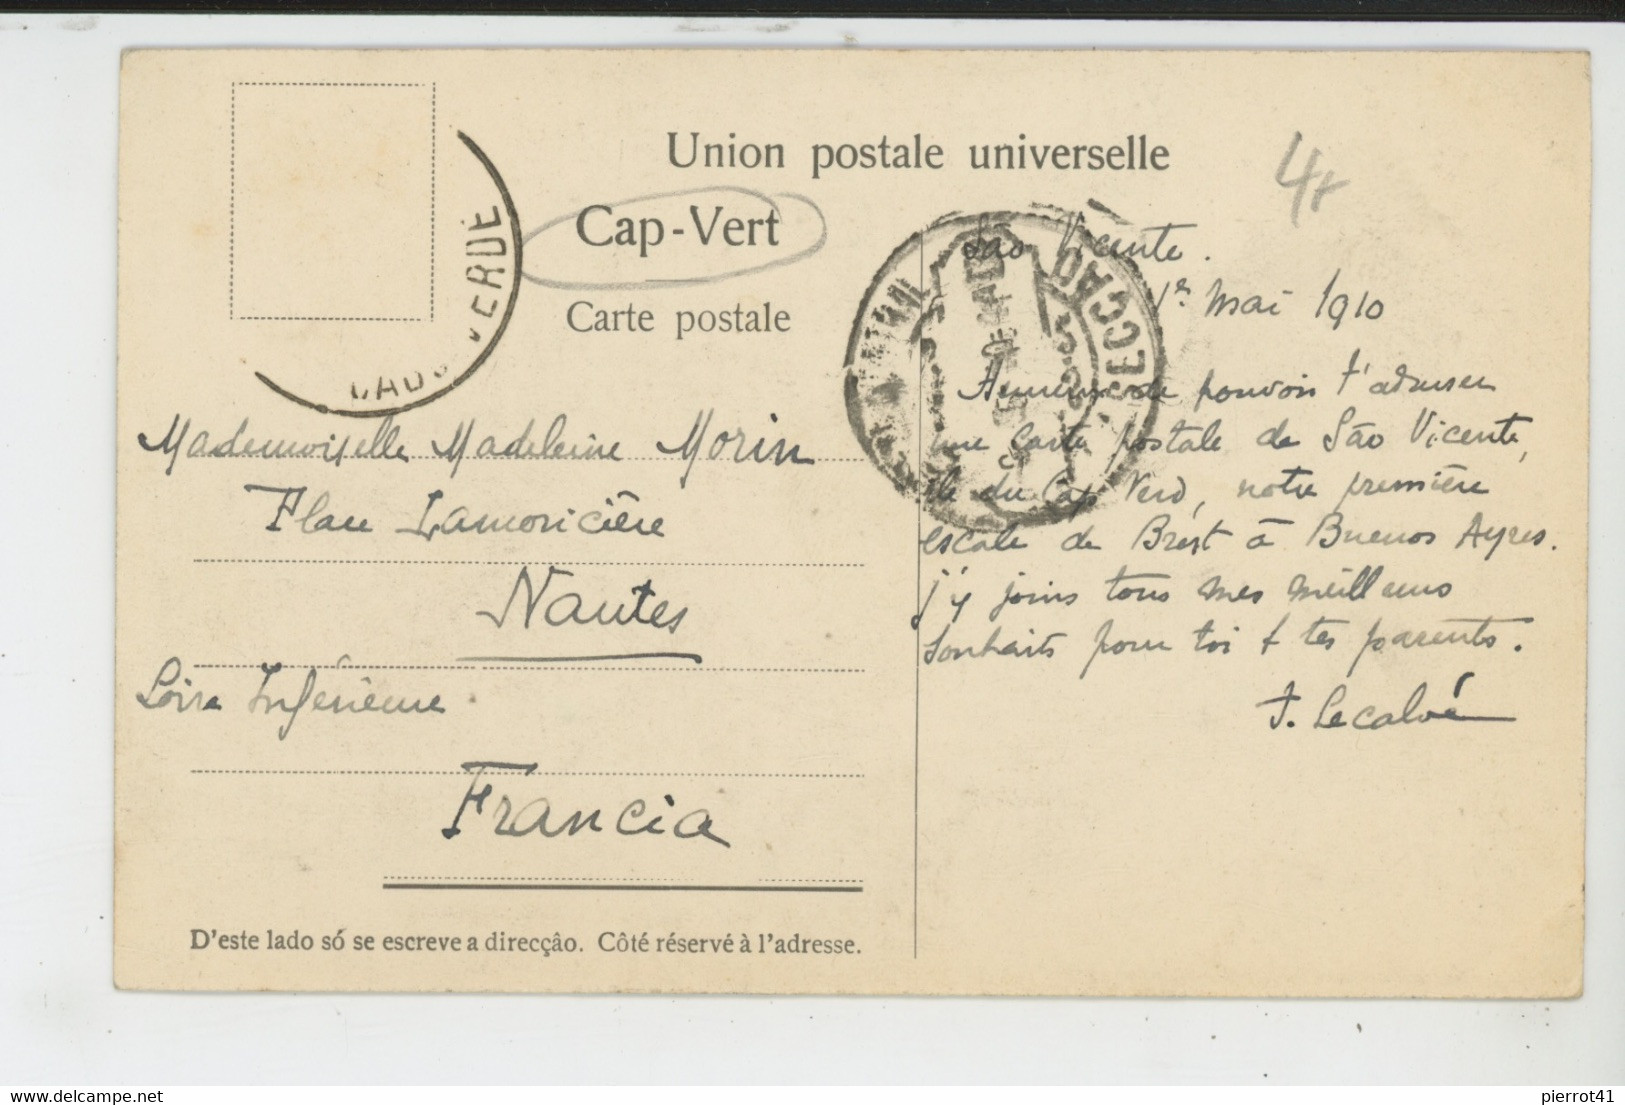 Union postale universelle
Cap-Vert
Carte postale
4
VERDE
SECCÃO
São Vicente.
1er mai 1910
Heureux de pouvoir t'adresser
une carte postale de São Vicente,
île du Cap Verd, notre première
escale de Brest à Buenos Ayres.
j'y joins tous mes meilleurs
souhaits pour toi & tes parents.
J. Lecalvé
Mademoiselle Madeleine Morin
Place Lamoricière
Nantes
Loire Inférieure
Francia
D'este lado só se escreve a direcçâo. Côté réservé à l'adresse.
delcampe.net
pierrot41